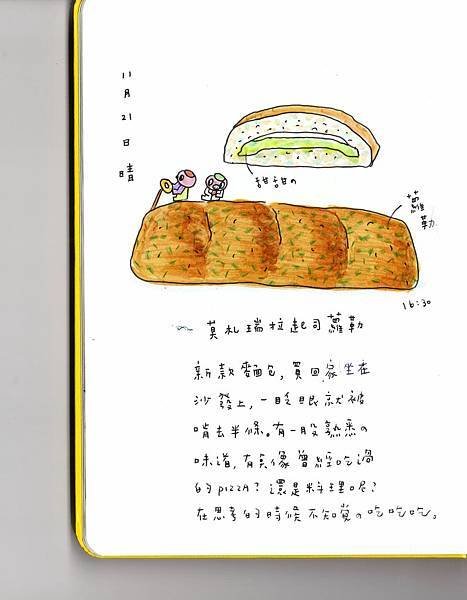 11月21日 晴
甜甜の
蘿勒
16:30
~ 莫札瑞拉起司蘿勒
新款麵包,買回家坐在
沙發上,一眨眼就被
啃去半條。有一股熟悉の
味道,有點像曾經吃過
的pizza?還是料理呢?
在思考的時候不知覺の吃吃吃。